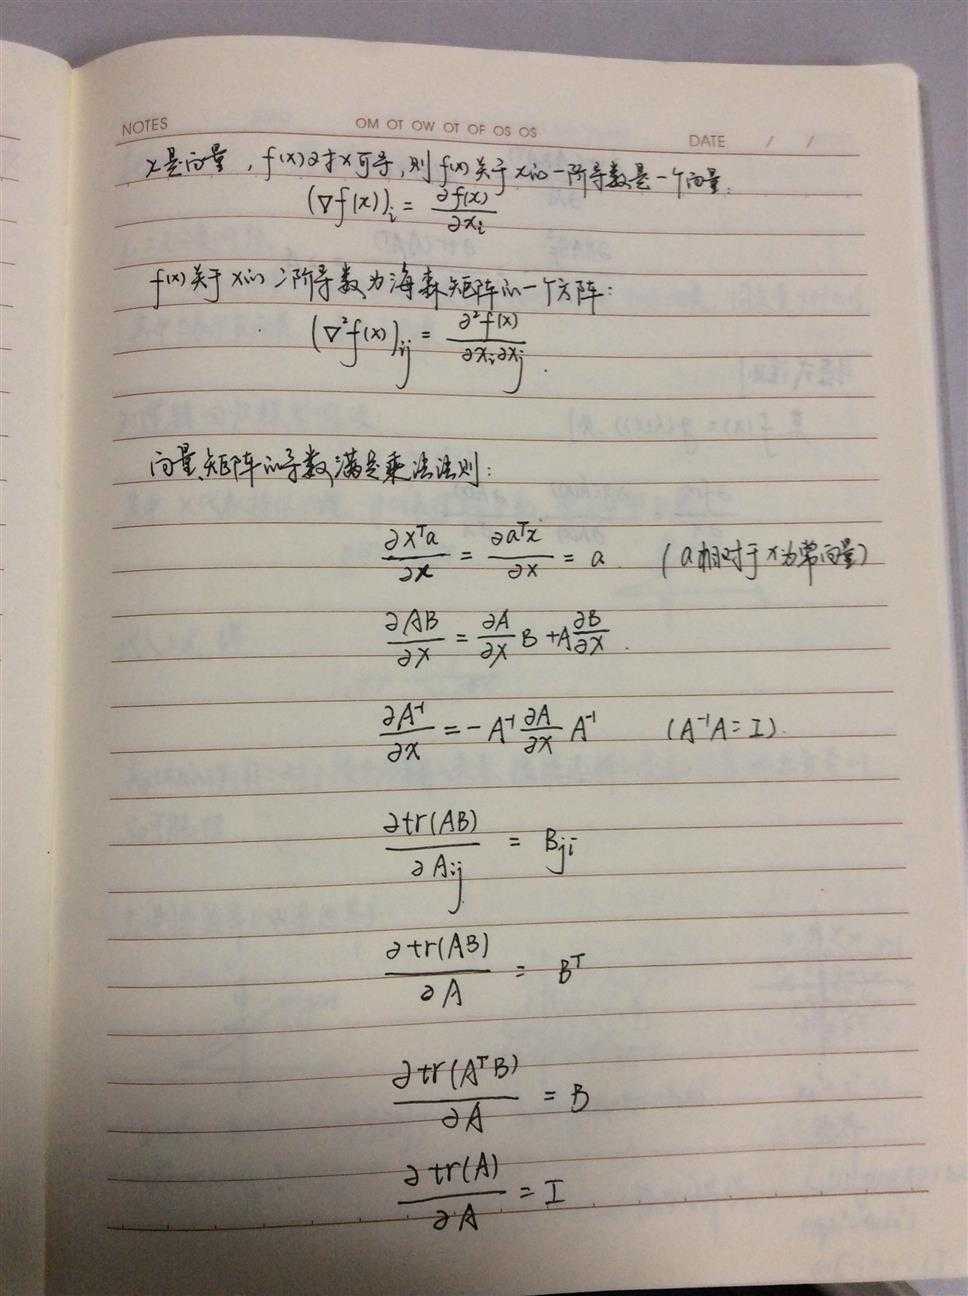 NOTES OM OT OW OT OF OS OS DATE / /
x是向量，f(x)对x可导，则f(x)关于x的一阶导数是一个向量：
(∇f(x))_i = ∂f(x)/∂x_i
f(x)关于x的二阶导数为海森矩阵的一个方阵：
(∇²f(x))_ij = ∂²f(x)/∂x_i∂x_j .
向量、矩阵的导数满足乘法法则：
∂xᵀa/∂x = ∂aᵀx/∂x = a (a相对于x为常向量)
∂AB/∂x = ∂A/∂x B + A ∂B/∂x .
∂A⁻¹/∂x = -A⁻¹ ∂A/∂x A⁻¹ (A⁻¹A = I).
∂tr(AB)/∂A_ij = B_ji
∂tr(AB)/∂A = Bᵀ
∂tr(AᵀB)/∂A = B
∂tr(A)/∂A = I